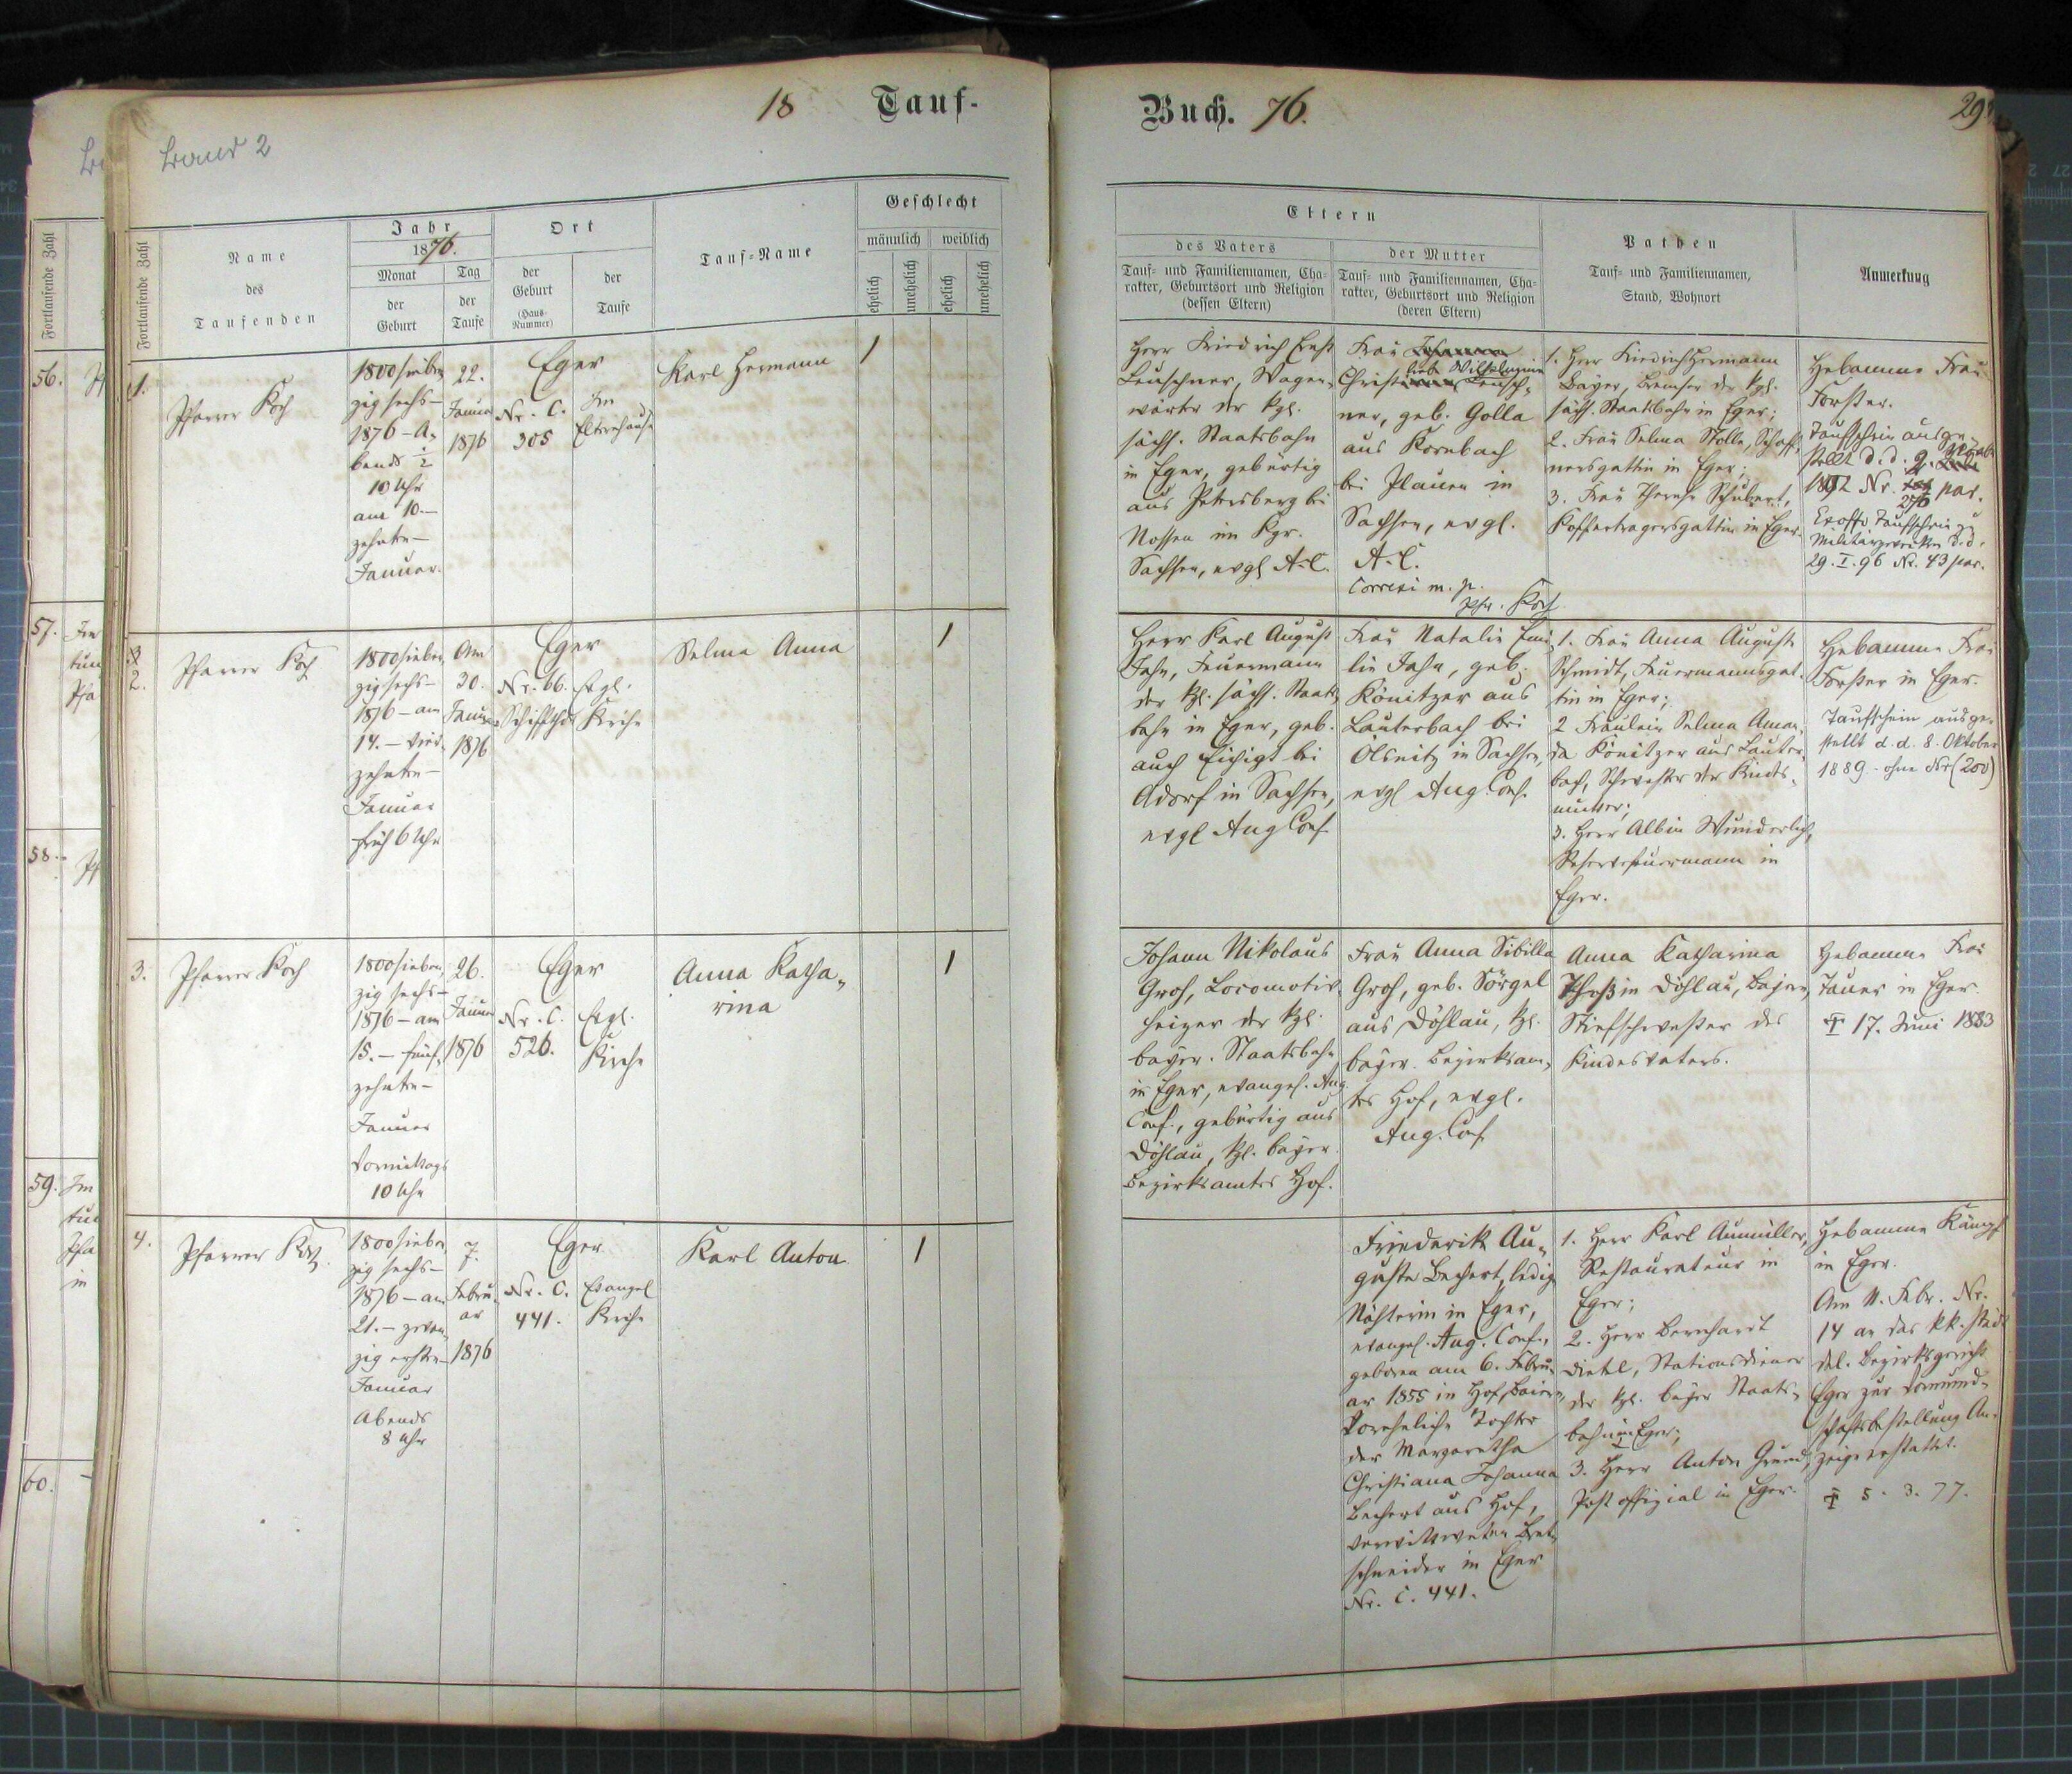 18 Tauf-
Buch. 76.
29
Band 2
Fortlaufende Zahl
56.
57.
58.
59. Im
60.
Fortlaufende Zahl
Name
des
Taufenden
Jahr
1876.
Monat
der
Geburt
Tag
der
Taufe
Ort
der
Geburt
(Haus-
Nummer)
der
Taufe
Tauf-Name
Geschlecht
männlich
weiblich
ehelich
unehelich
ehelich
unehelich
Eltern
des Vaters
Tauf- und Familiennamen, Cha-
rakter, Geburtsort und Religion
(dessen Eltern)
der Mutter
Tauf- und Familiennamen, Cha-
rakter, Geburtsort und Religion
(deren Eltern)
Pathen
Tauf- und Familiennamen,
Stand, Wohnort
Anmerkung
1.
Pfarrer Koch
1800 sieben
zig sechs-
1876 - A-
bends ½
10 Uhr
am 10.-
zehnten-
Januar.
22.
Januar
1876
Eger
Nr. C.
305
Im
Elternhause
Karl Hermann
1
Herr Friedrich Ernst
Leuschner, Wagen-
wärter der kgl.
sächs. Staatsbahn
in Eger, gebürtig
aus Petersberg bei
Nossen im Kgr.
Sachsen, evgl A.C.
Frau
Christliebe Wilhelmine Leusch-
ner, geb. Golla
aus Kornbach
bei Plauen in
Sachsen, evgl.
A.C.
Correxi m. p.
Pfr. Koch
1. Herr Friedrich Hermann
Bayer, Bremser der kgl.
sächs. Staatsbahn in Eger;
2. Frau Selma Stolle, Schaff-
nersgattin in Eger;
3. Frau Therese Schubert,
Kofferträgersgattin in Eger.
Hebamme Frau
Forster.
Taufschein ausge-
stellt d. d. 9.
1892 Nr. 276 par.
Exoffo Taufschein zu
Militärzwecken d. d.
29. I. 96 Nr. 43 par.
2.
Pfarrer Koch
1800 sieben
zig sechs-
1876 - am
14. - vier-
zehnten-
Januar
früh 6 Uhr
Am
30.
Januar
1876
Eger
Nr. 66.
Schiffthor
Evgl.
Kirche
Selma Anna
1
Herr Karl August
Jahn, Feuermann
der kgl. sächs. Staats-
bahn in Eger, geb.
auch Eichigt bei
Adorf in Sachsen,
evgl Aug Conf.
Frau Natalie Emi-
lie Jahn, geb.
Könitzer aus
Lauterbach bei
Ölsnitz in Sachsen,
evgl Aug. Conf.
1. Frau Anna Auguste
Schmidt, Feuermannsgat-
tin in Eger;
2 Fräulein Selma Aman-
da Könitzer aus Lauter-
bach, Schwester der Kinds-
mutter;
3. Herr Albin Wunderlich,
Reservefeuermann in
Eger.
Hebamme Frau
Forster in Eger.
Taufschein ausge-
stellt d. d. 8. Oktober
1889 - ohne Nr (200)
3.
Pfarrer Koch
1800 sieben
zig sechs-
1876 - am
15. - fünf-
zehnten-
Januar
Vormittags
10 Uhr
26.
Januar
1876
Eger
Nr. C.
526.
Evgl.
Kirche
Anna Katha-
rina
1
Johann Nikolaus
Groh, Locomotiv-
heizer der kgl.
bayer. Staatsbahn
in Eger, evangel. Aug.
Conf., gebürtig aus
Döhlau, kgl. bayer.
Bezirksamtes Hof.
Frau Anna Sibilla
Groh, geb. Sörgel
aus Döhlau, kgl.
bayer. Bezirksam-
tes Hof, evgl.
Aug. Conf.
Anna Katharina
Thoß in Döhlau, Bajern,
Stiefschwester des
Kindesvaters.
Hebamme Frau
Tauer in Eger.
† 17. Juni 1883
4.
Pfarrer Koch.
1800 sieben
zig sechs-
1876 - am
21. - zwan-
zig ersten-
Januar
Abends
8 Uhr
7.
Febru-
ar
1876
Eger
Nr. C.
441.
Evangel
Kirche
Karl Anton
1
Friederike Au-
guste Bechert, ledig
Näherin in Eger,
evangel. Aug. Conf.,
geboren am 6. Febru-
ar 1855 in Hof, Baiern,
Voreheliche Tochter
der Margaretha
Christiana Johanna
Bechert aus Hof,
verwittweten Bret-
schneider in Eger
Nr. C. 441.
1. Herr Karl Aumüller,
Restaurateur in
Eger;
2. Herr Bernhardt
Dietel, Stationsdiener
der kgl. bayer Staats-
bahn in Eger;
3. Herr Anton Grund,
Postoffizial in Eger.
Hebamme Kämpf
in Eger.
Am 11. Febr. Nr.
14 an das kk. städt
del. Bezirksgericht
Eger zur Vormund-
schaftsbestellung An-
zeige erstattet.
† 5. 3. 77.